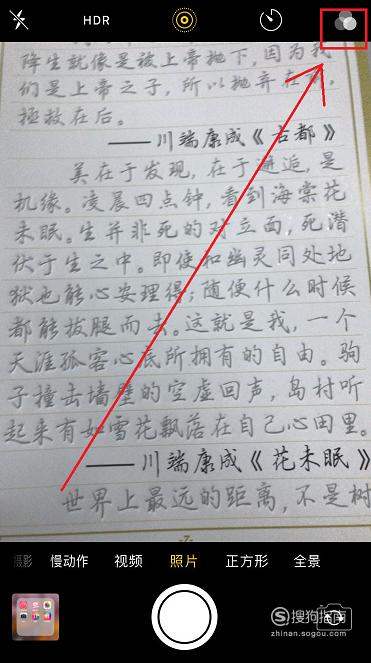 HDR
降生就像是被上帝抛下，因为我
们是上帝之子，所以抛弃在
拯救在后。
——川端康成《古都》
美在于发现，在于邂逅，是
机缘。凌晨四点钟，看到海棠花
未眠。生并非死的对立面，死潜
伏于生之中。即使和幽灵同处地
狱也能心安理得；随便什么时候
都能拔腿而去。这就是我，一个
天涯孤客心底所拥有的自由。驹
子撞击墙壁的空虚回声，岛村听
起来有如雪花飘落在自己心田里。
——川端康成《花未眠》
世界上最远的距离，不是树
-7-
摄影 慢动作 视频 照片 正方形 全景
搜狗指南
zhinan.sogou.com